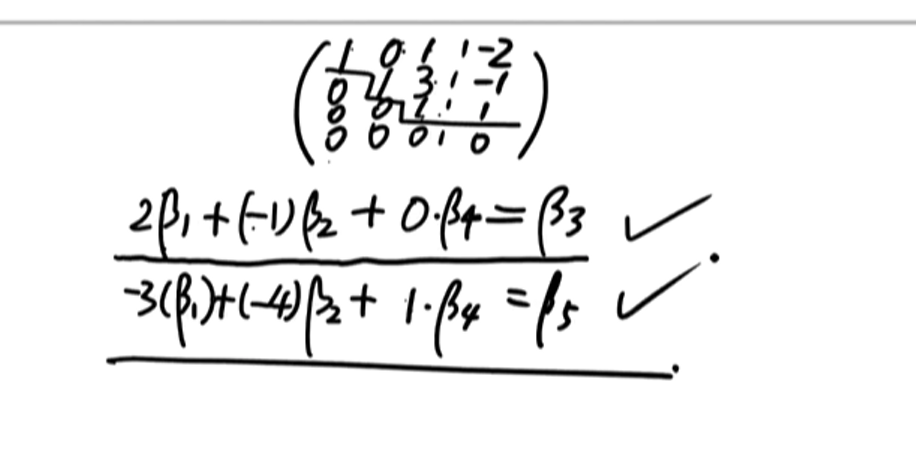 1 0 1 | -2
0 1 3 | -1
0 0 1 | 1
0 0 0 | 0
2β₁+(-1)β₂ + 0·β₄=β₃ ✓
-3(β₁)+(-4)β₂+ 1·β₄ =β₅ ✓